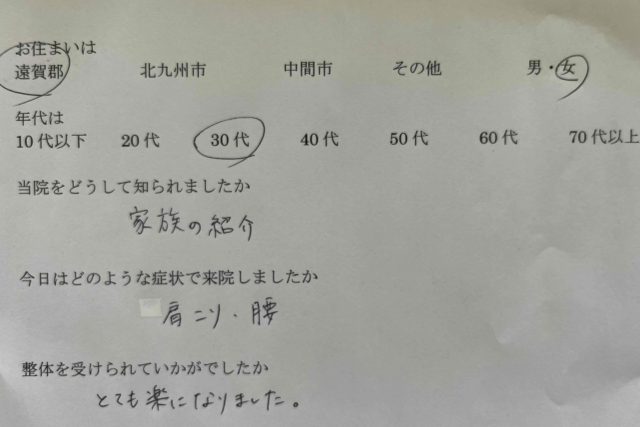 お住まいは
遠賀郡 北九州市 中間市 その他 男・女
年代は
10代以下 20代 30代 40代 50代 60代 70代以上
当院をどうして知られましたか
家族の紹介
今日はどのような症状で来院しましたか
肩こり・腰
整体を受けられていかがでしたか
とても楽になりました。